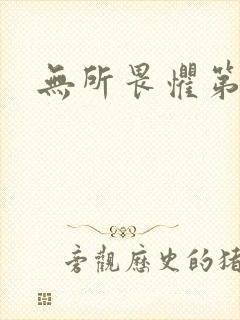 無所畏懼第
旁觀歷史的猪